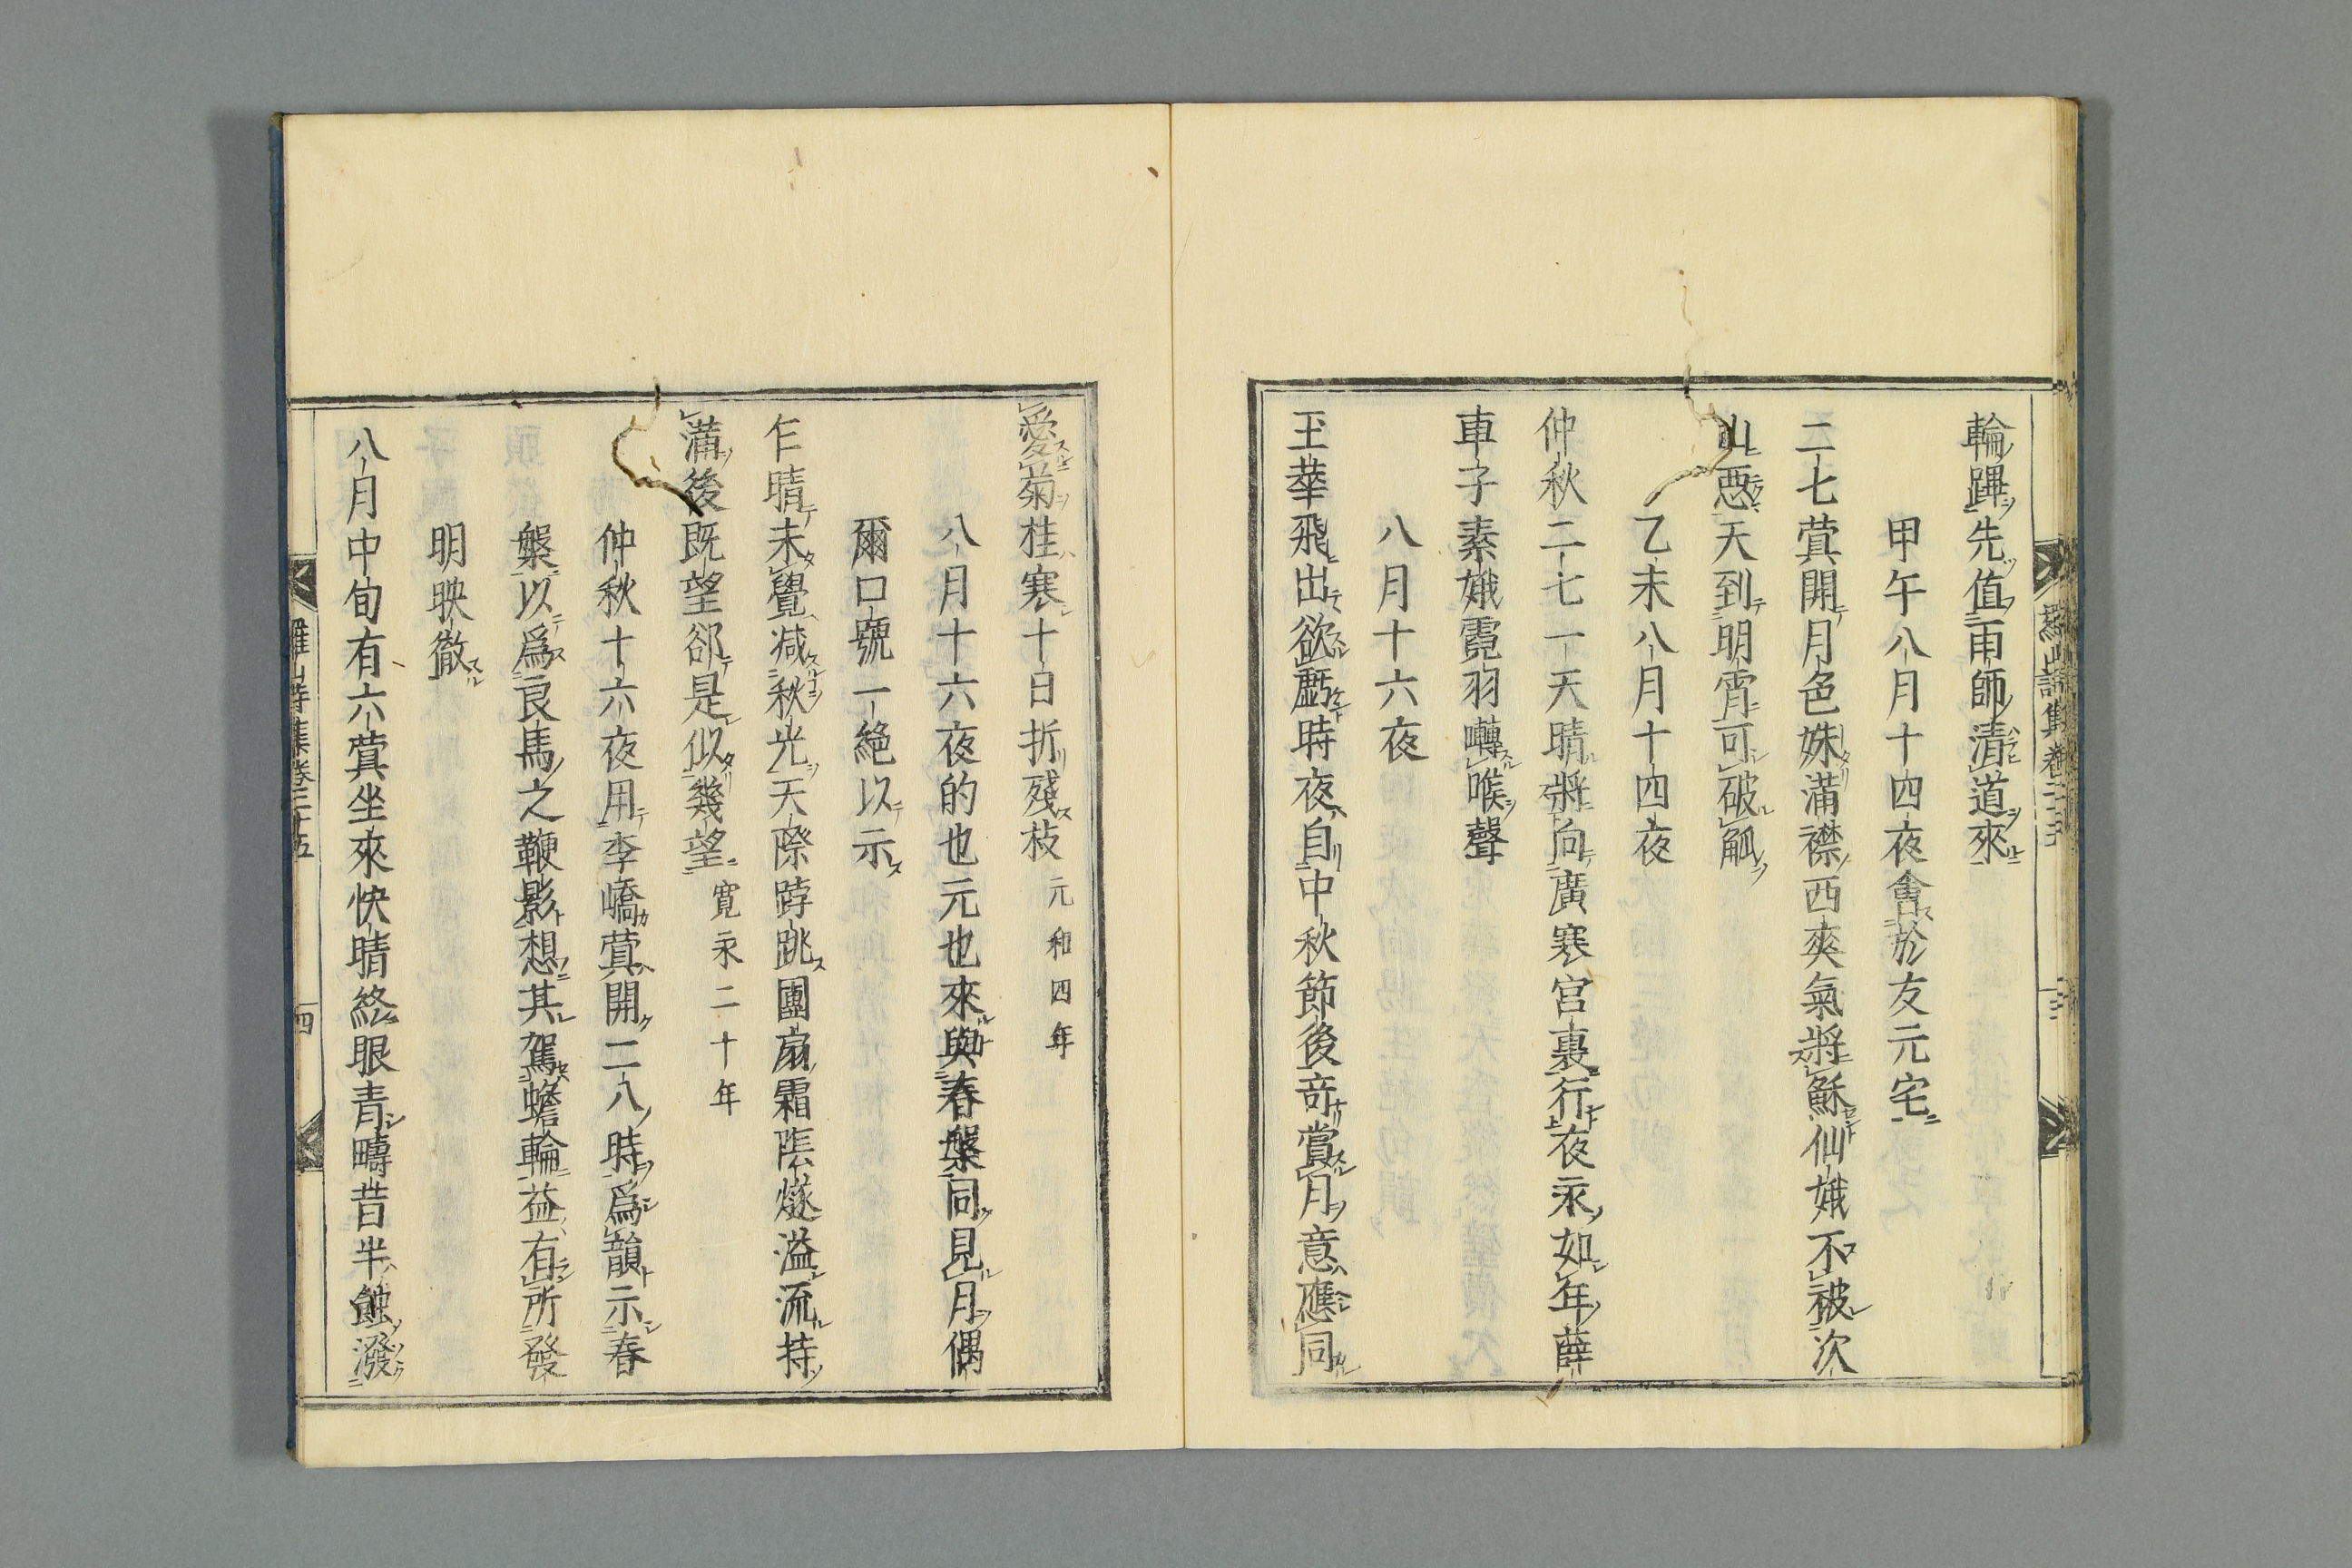 輪蹕先値雨師清道來
甲午八月十四夜會於友元宅
二七蓂開月色姝滿襟西爽氣將蘇仙娥不被次
山惡天到明宵可破觚
乙未八月十四夜
仲秋二七一天晴將向廣寒宮裏行夜永如年薛
車子素娥霓羽囀喉聲
八月十六夜
玉華飛出欲虧時夜自中秋節後竒賞月意應同
愛菊桂寒十日折殘枝 元和四年
八月十六夜的也元也來與春槃同見月偶
爾口號一絶以示
乍晴未覺減秋光天際踍跳團扇霜陰燧溢流持
滿後既望郤是似幾望 寛永二十年
仲秋十六夜用李嶠蓂開二八時爲韻示春
槃以爲良馬之鞭影想其駕蟾輪益有所發
明映徹
八月中旬有六蓂坐來快晴終眼青疇昔半蝕潑
羅山詩集卷三十五
四